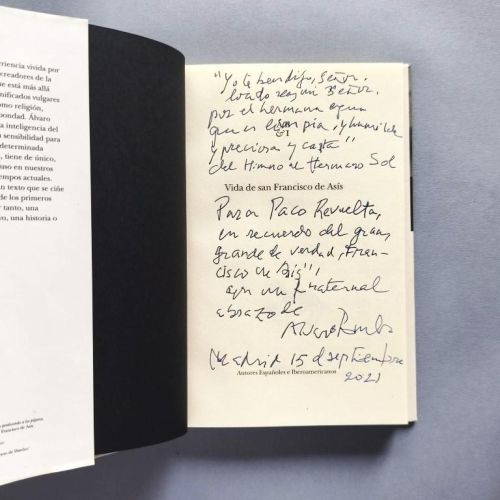 eriencia vivida por
creadores de la
que está más allá
nificados vulgares
omo religión,
pondad. Álvaro
inteligencia del
sensibilidad para
determinada
, tiene de único,
uno en nuestros
empos actuales.
n texto que se ciñe
de los primeros
tanto, una
vo, una historia o
predicando a los pájaros,
Francisco de Asís
"Yo te bendigo, Señor,
loado seas mi Señor,
por el hermana agua
que es limpia, y humilde
y preciosa y casta"
del Himno al Hermano Sol
Vida de san Francisco de Asís
Para Paco Revuelta,
en recuerdo del gran,
grande de verdad, Fran-
cisco de Asís",
con un fraternal
abrazo de
Alvaro Pombo
Madrid 15 d septiembre
2021
Autores Españoles e Iberoamericanos